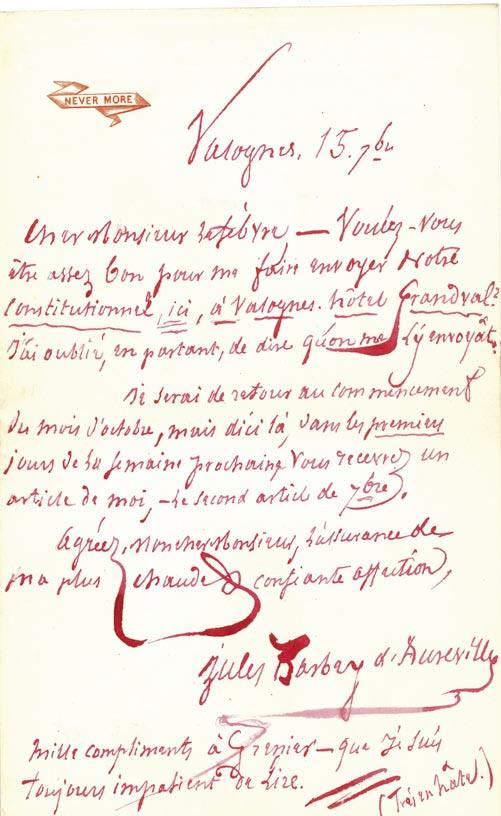 NEVER MORE
Valognes, 15. 7bre
Cher Monsieur Lefèbvre — Voulez-vous
être assez bon pour me faire envoyer notre
Constitutionnel, ici, à Valognes. hôtel Grandval?
J'ai oublié, en partant, de dire qu'on me l'y envoyât.
Je serai de retour au commencement
du mois d'octobre, mais d'ici là, dans les premiers
jours de la semaine prochaine vous recevrez un
article de moi, – le second article de 7bre.
Agréez, mon cher Monsieur, l'assurance de
ma plus chaude & confiante affection,
Jules Barbey d'Aurevilly
mille compliments à Grenier — que je suis
toujours impatient de lire.
(Très en hâte.)